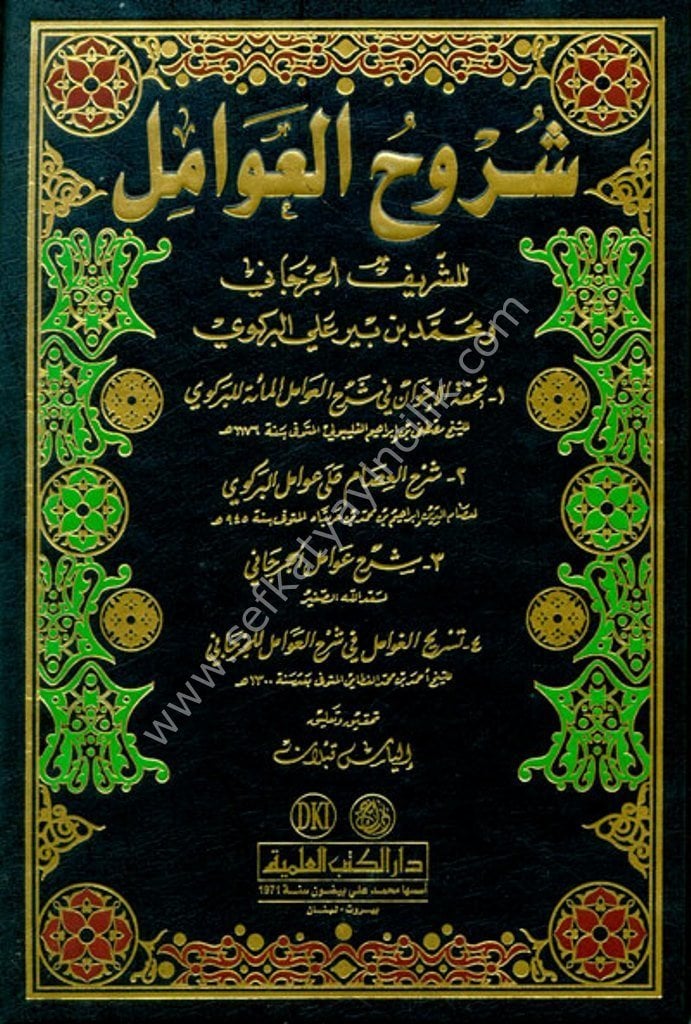 شُرُوحُ العَوَامِل
للشّريف الجرجاني
ومحمّد بن بير علي البركوي
١- تحفة الإخوان في شرح العوامل المائة للبركوي
للشيخ مصطفى بن إبراهيم الغليبولي المتوفى سنة ١١٧٦هـ
٢- شرح العصام على عوامل البركوي
لعصام الدين إبراهيم بن محمد بن عربشاه المتوفى سنة ٩٤٥هـ
٣- شرح عوامل الجرجاني
لسعد الله الصغير
٤- تسريح الغوامل في شرح العوامل للجرجاني
للشيخ أحمد بن محمد الفطاني المتوفى بعد سنة ١٣٠٠هـ
تحقيق وتعليق
إلياس قبلان
DKI
دار الكتب العلمية
أسسها محمد علي بيضون سنة 1971
بيروت - لبنان
www.sefkatyayincilik.com